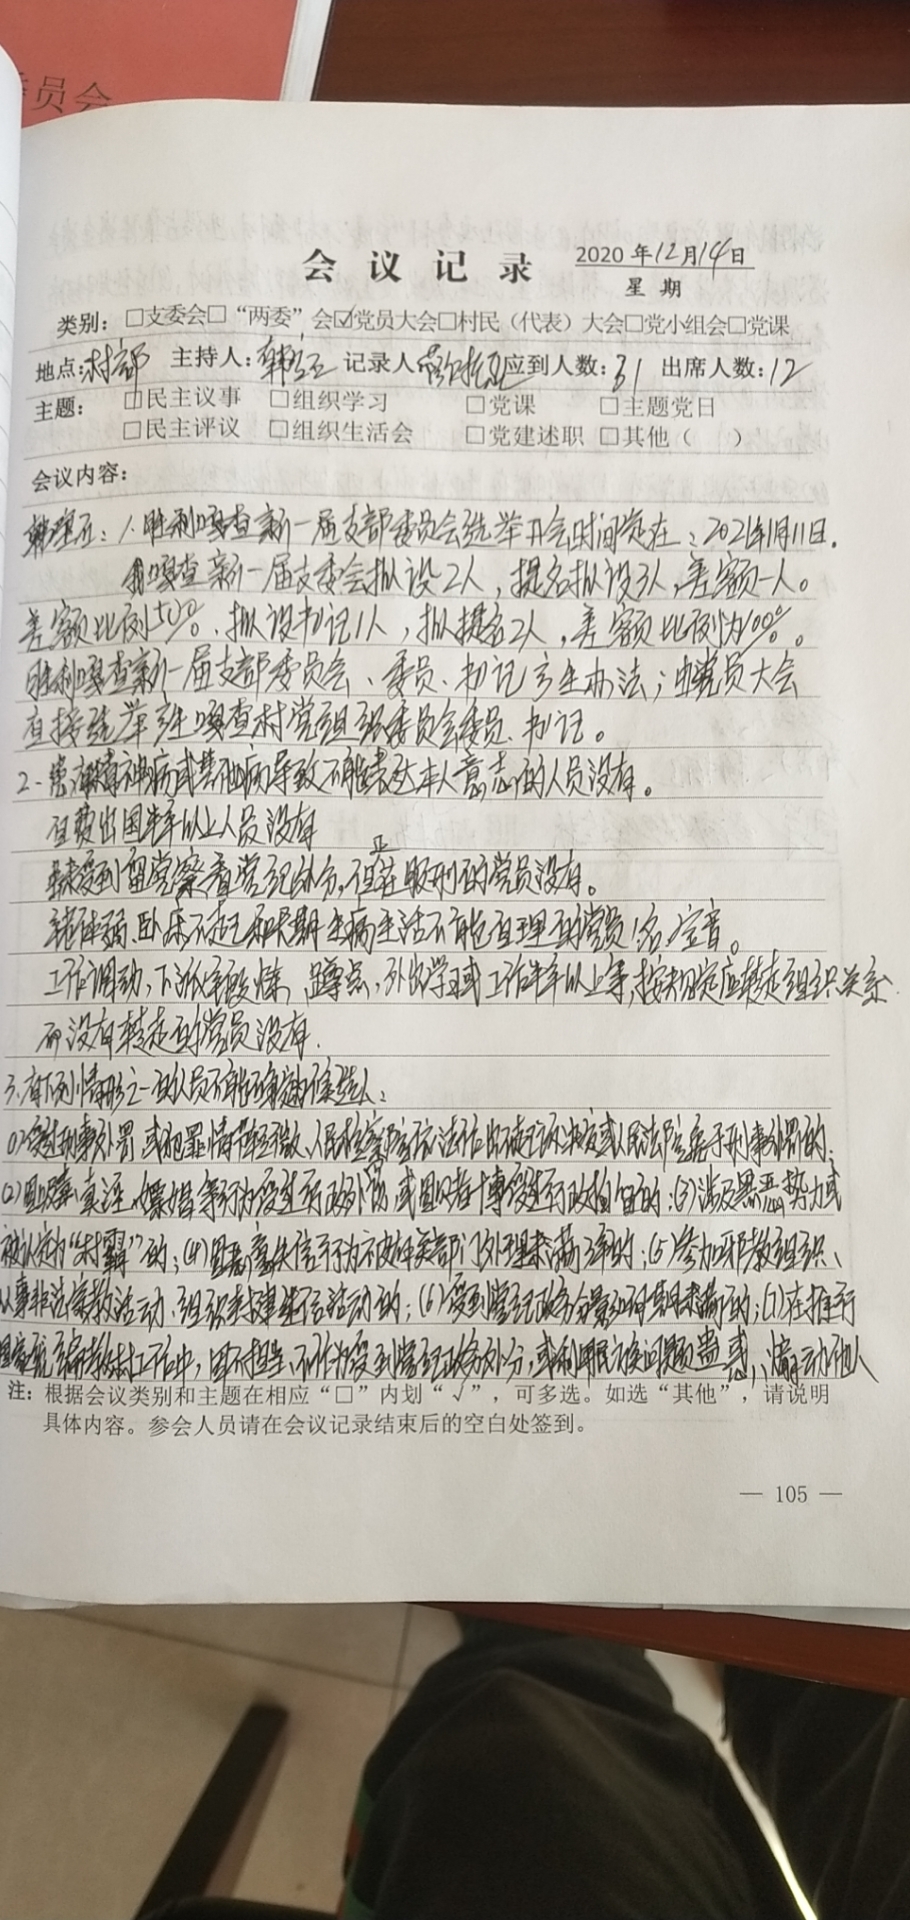 委员会
会议记录 2020年12月14日
星期
类别：□支委会□“两委”会☑党员大会□村民（代表）大会□党小组会□党课
地点：村部 主持人： 记录人 应到人数：31 出席人数：12
主题：☑民主议事 □组织学习 □党课 □主题党日
□民主评议 □组织生活会 □党建述职 □其他（ ）
会议内容：
1.胜利嘎查新一届支部委员会选举开会时间定在：2021年1月11日。
嘎查新一届支委会拟设2人，提名拟设3人，差额一人。
差额比例50%、拟设书记1人，拟提名2人，差额比例为100%。
胜利嘎查新一届支部委员会、委员、书记产生办法；由党员大会
直接选举产生嘎查村党组织委员会委员、书记。
2、患有精神病或其他病导致不能表达本人意志的人员没有。
自费出国半年以上人员没有
未受到留党察看党纪处分，但正在服刑的党员没有。
年老体弱、卧床不起和长期生病生活不能自理的党员1名，宝音。
工作调动，下派锻炼，蹲点，外出学习或工作半年以上等，按规定应转走组织关系
而没有转走的党员没有。
3.有下列情形之一的人员不能确定为候选人：
(1)受过刑事处罚，或犯罪情节轻微、人民检察院依法作出不起诉决定或人民法院免予刑事处罚的；
(2)因吸毒、卖淫、嫖娼等行为受过行政处罚或因赌博受过行政拘留的；(3)涉及黑恶势力或
被认定为“村霸”的；(4)因恶意失信行为被有关部门处理未满的；(5)参加邪教组织、
从事非法宗教活动、组织封建迷信活动的；(6)受到党纪政务处分影响期未满的；(7)在推行
国家统编教材工作中，因不担当、不作为受到党纪政务处分，或利用民族问题蛊惑、煽动他人
注：根据会议类别和主题在相应“□”内划“√”，可多选。如选“其他”，请说明
具体内容。参会人员请在会议记录结束后的空白处签到。
— 105 —